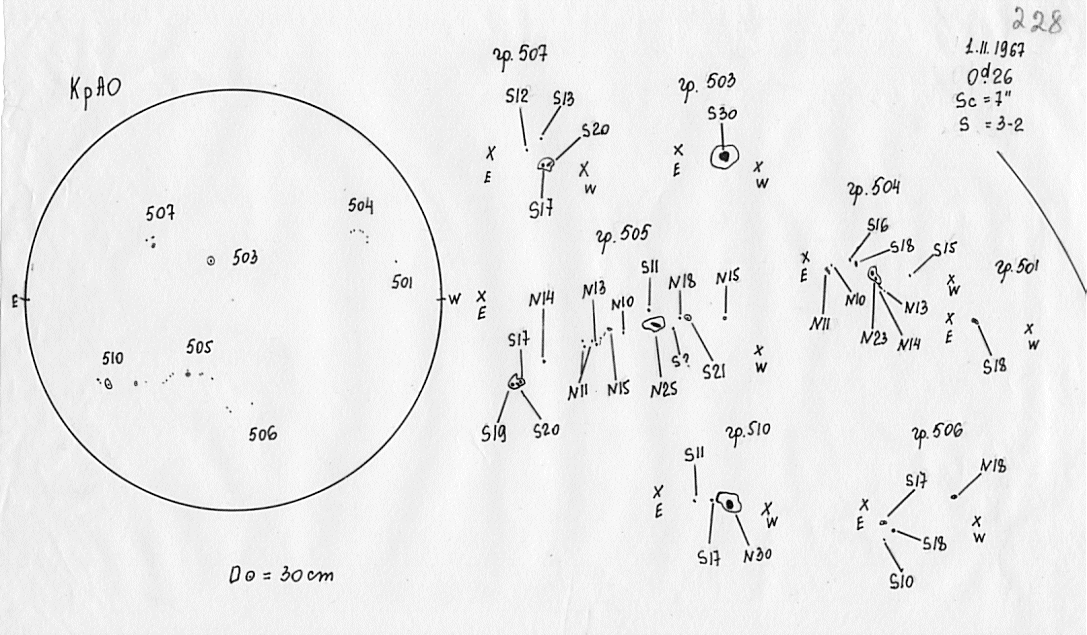 228
1.II.1967
0ᵈ26
Sc = 7"
S = 3-2
КрАО
507
504
503
501
E
W
510
505
506
D⊙ = 30 cm
гр. 507
S12
S13
S20
X
E
X
W
S17
гр. 503
S30
X
E
X
W
гр. 504
S16
S18
S15
X
E
X
W
N11
N10
N23
N14
N13
гр. 501
X
E
X
W
S18
гр. 505
X
E
N14
N13
N10
S11
N18
N15
S17
X
W
N11
N15
N25
S?
S21
S19
S20
гр. 510
S11
X
E
X
W
S17
N30
гр. 506
S17
N18
X
E
X
W
S18
S10